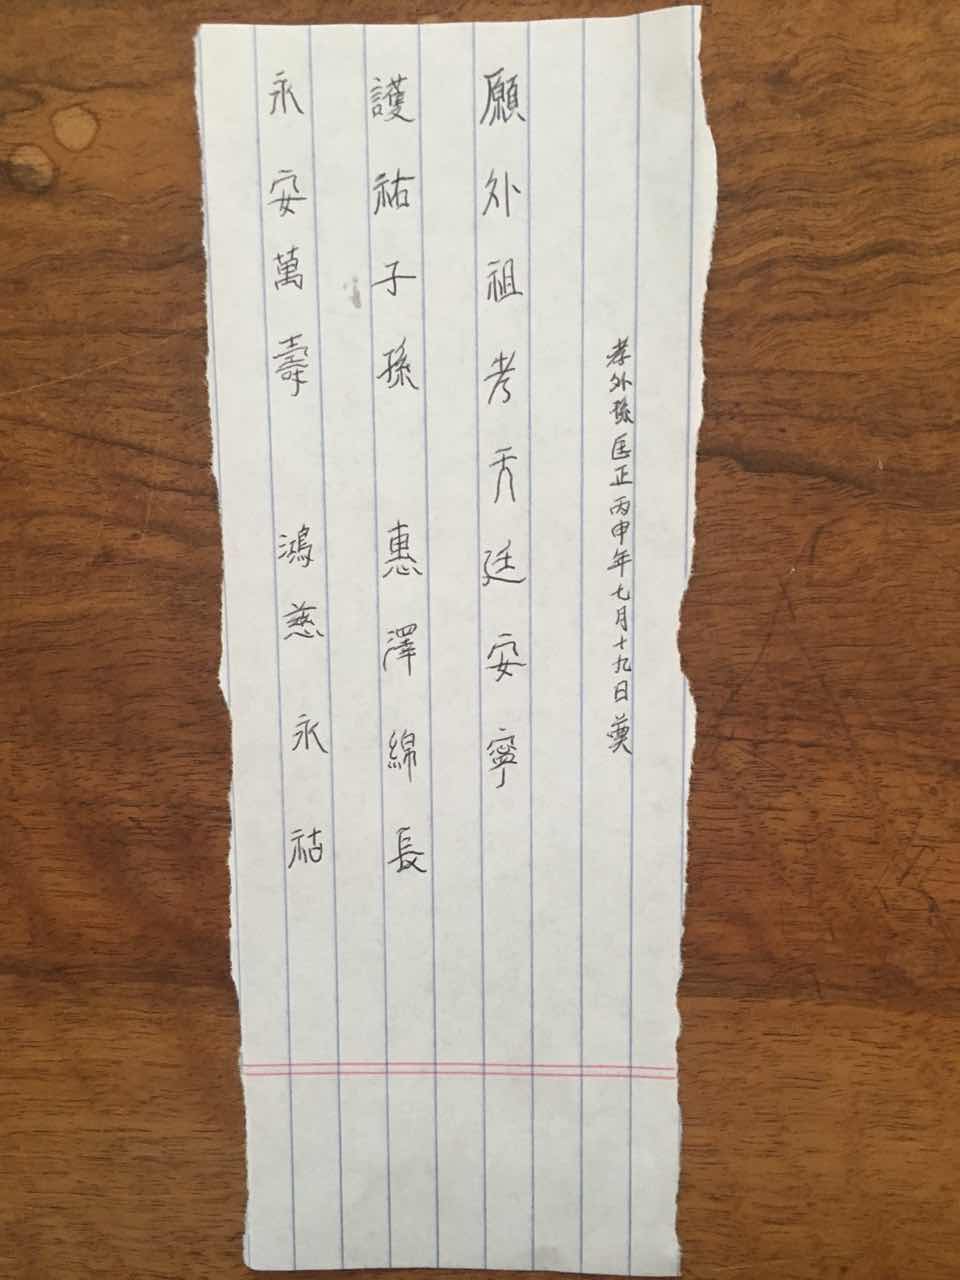 孝外孫匡正丙申年七月十九日奠
願外祖考天廷安寧
護祐子孫 惠澤綿長
永安萬壽 鴻慈永祜